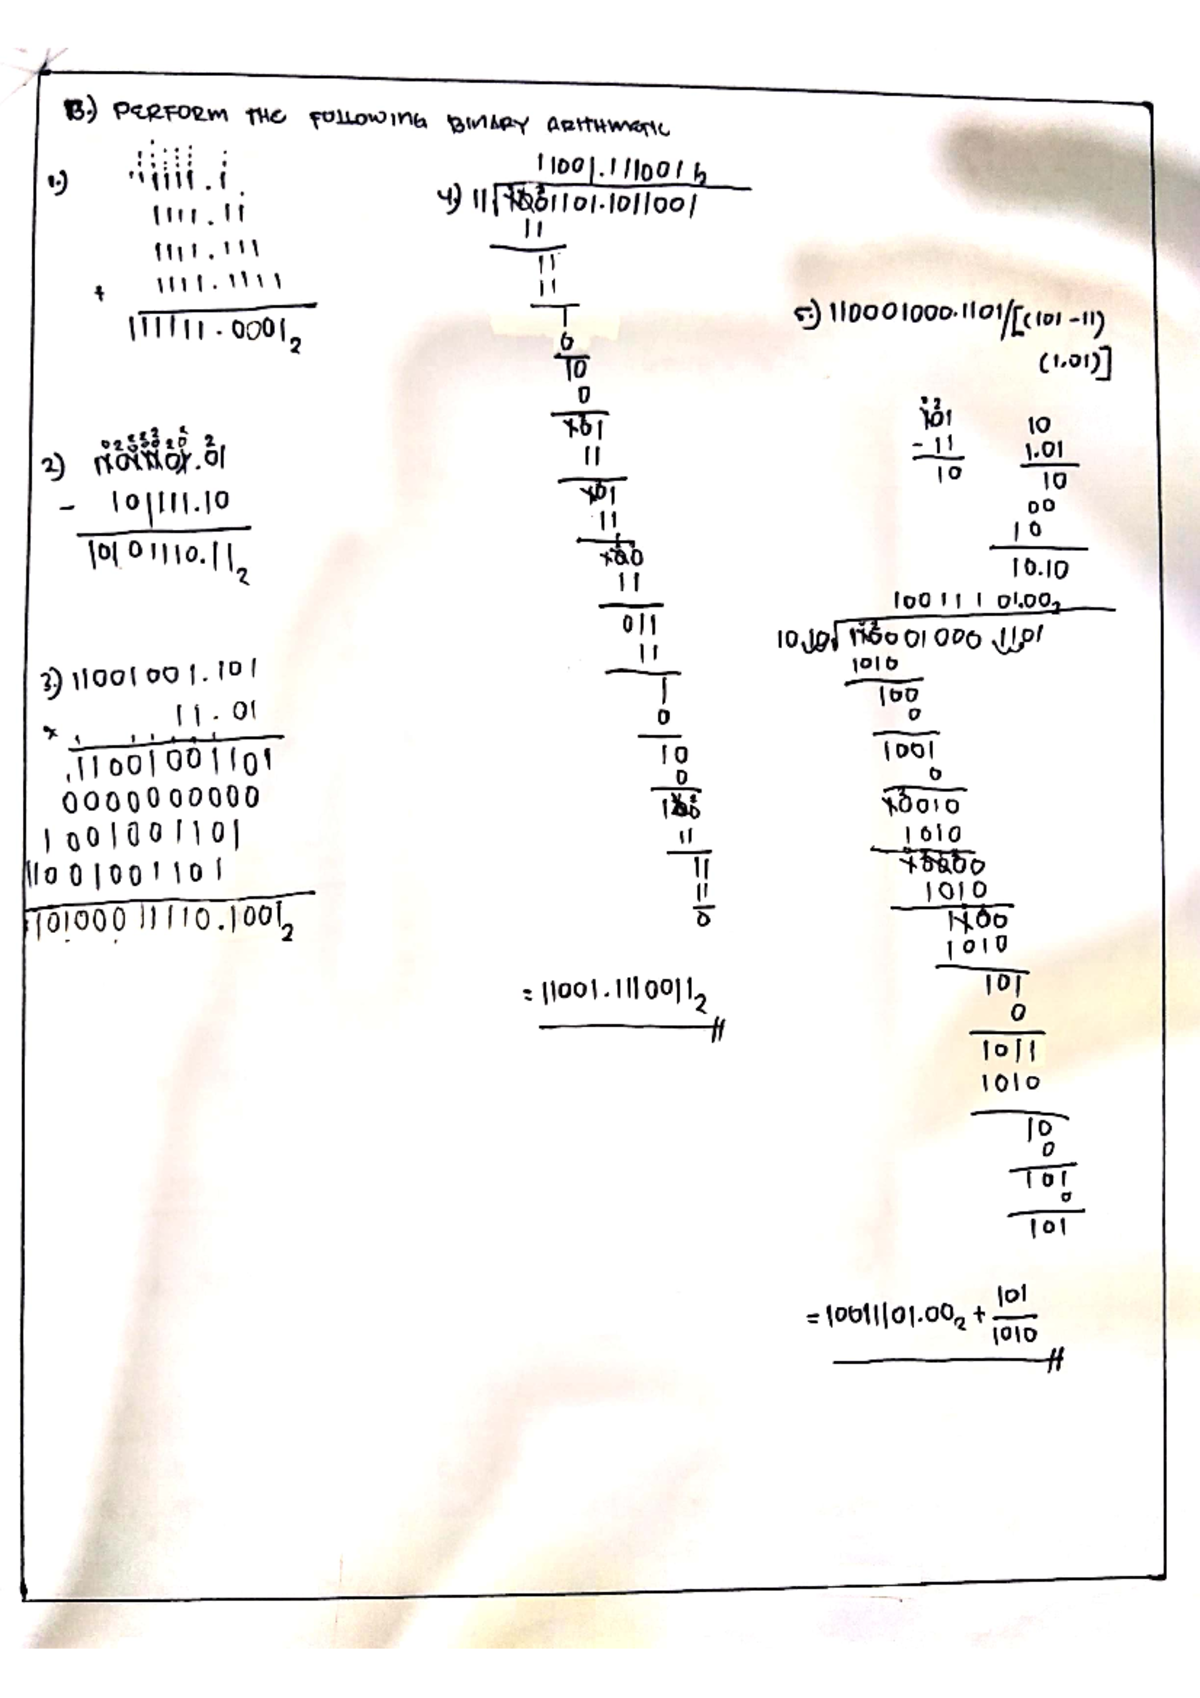 B.) PERFORM THE FOLLOWING BINARY ARITHMETIC
1.)
1111.1
1111.11
1111.111
+ 1111.1111
111111.0001₂
2) 11011101.01
- 101111.10
10101110.11₂
3.) 11001001.101
x 11.01
11001001101
0000000000
1001001101
11001001101
10100011110.1001₂
4.) 11001.1110011
11 1001101.1011001
11
11
11
1
0
10
0
101
11
101
11
100
11
011
11
1
0
10
0
100
11
11
11
0
= 11001.1110011₂
5.) 110001000.1101/[(101-11)
(1.01)]
101
- 11
10
10
1.01
10
00
10
10.10
100111101.00₂
10.10 110001000.1101
1010
100
0
1001
0
10010
1010
10000
1010
1100
1010
101
0
1011
1010
10
0
101
0
101
= 10011101.00₂ + 101
1010